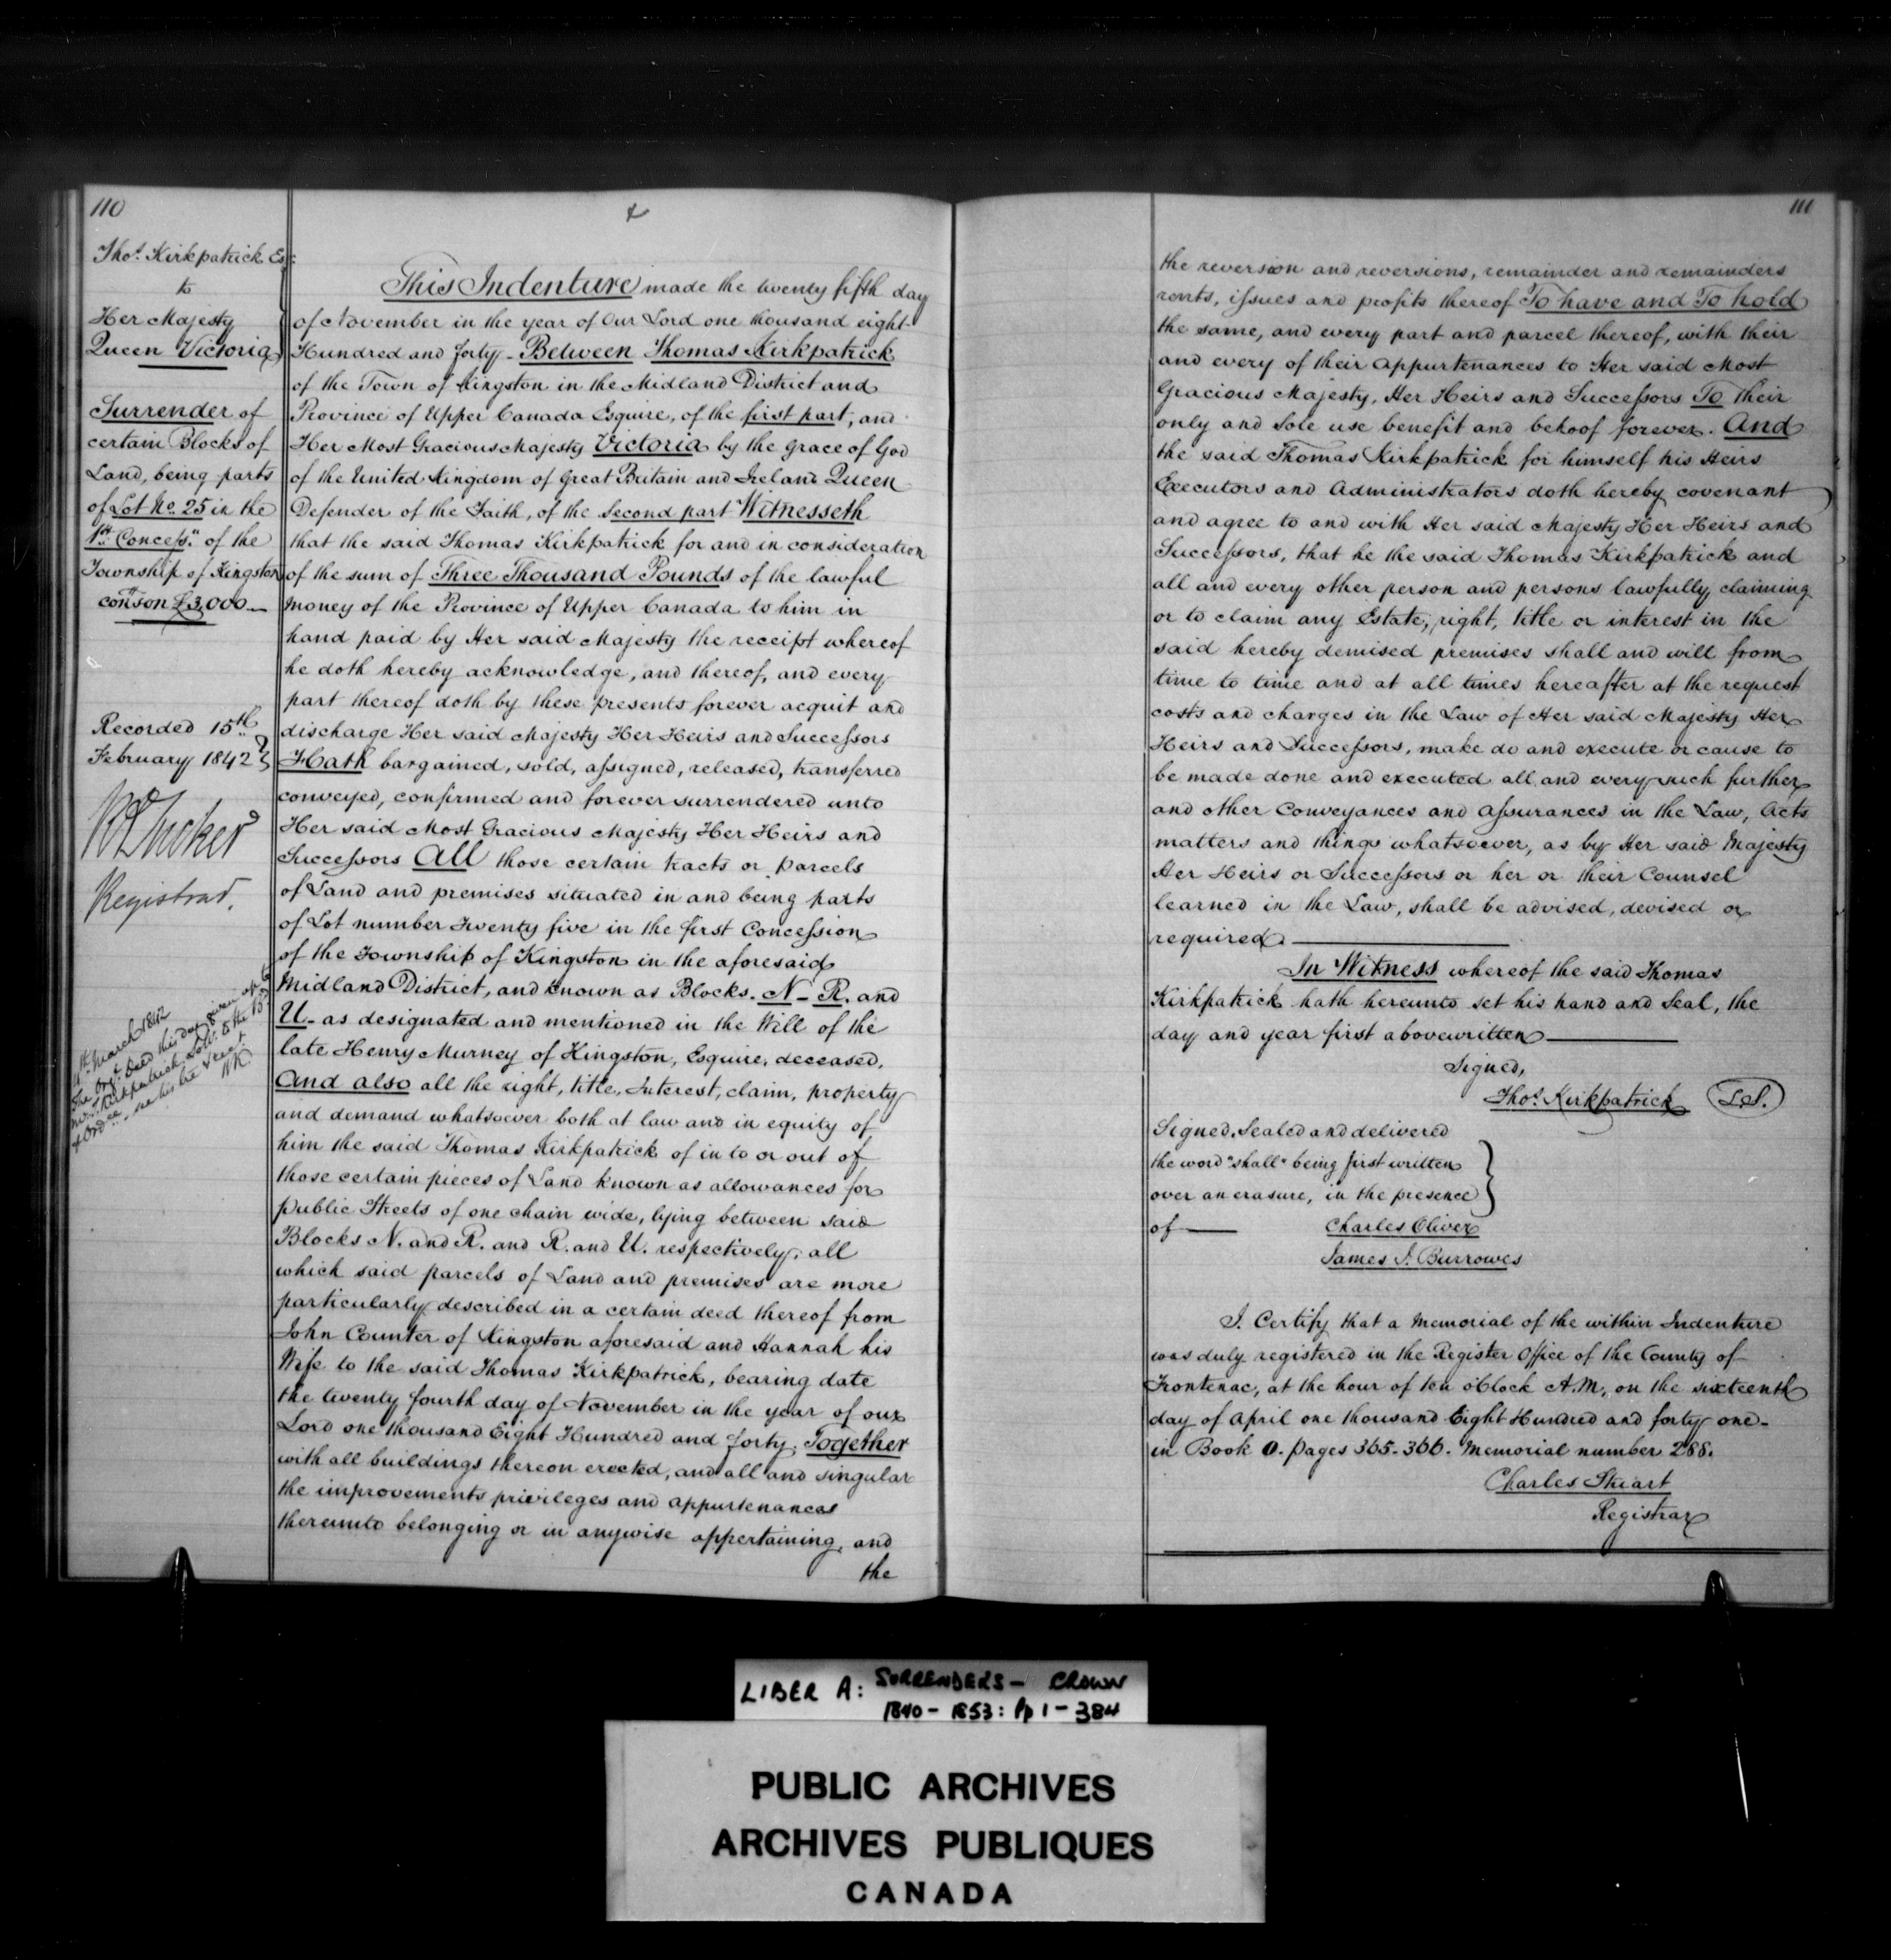 110
Thos. Kirkpatrick Esqr.
to
Her Majesty
Queen Victoria
Surrender of
certain Blocks of
Land, being parts
of Lot No. 25 in the
1st. Concessn. of the
Township of Kingston
con'son £3,000
Recorded 15th.
February 1842
RA Tucker
Registrar.
4th March 1842
The Orgl. Deed this day given up to
Mr. Kirkpatrick Solr. to the Bd. of
Ordce. see his lre & rect.
This Indenture made the twenty fifth day
of November in the year of Our Lord one thousand eight
Hundred and forty - Between Thomas Kirkpatrick
of the Town of Kingston in the Midland District and
Province of Upper Canada Esquire, of the first part, and
Her Most Gracious Majesty Victoria by the Grace of God
of the United Kingdom of Great Britain and Ireland Queen
Defender of the Faith, of the Second part Witnesseth
that the said Thomas Kirkpatrick for and in consideration
of the sum of Three Thousand Pounds of the lawful
Money of the Province of Upper Canada to him in
hand paid by Her said Majesty the receipt whereof
he doth hereby acknowledge, and thereof, and every
part thereof doth by these presents forever acquit and
discharge Her said Majesty Her Heirs and Successors
Hath bargained, sold, assigned, released, transferred
conveyed, confirmed and forever surrendered unto
Her said Most Gracious Majesty Her Heirs and
Successors All those certain tracts or parcels
of Land and premises situated in and being parts
of Lot number Twenty five in the first Concession
of the Township of Kingston in the aforesaid
Midland District, and known as Blocks. N - R. and
U - as designated and mentioned in the Will of the
late Henry Murney of Kingston, Esquire, deceased,
And also all the right, title, Interest, claim, property
and demand whatsoever both at law and in equity of
him the said Thomas Kirkpatrick of in to or out of
those certain pieces of Land known as allowances for
public Streets of one chain wide, lying between said
Blocks N. and R. and R. and U. respectively, all
which said parcels of Land and premises are more
particularly described in a certain deed thereof from
John Counter of Kingston aforesaid and Hannah his
Wife to the said Thomas Kirkpatrick, bearing date
the twenty fourth day of November in the year of our
Lord one thousand Eight Hundred and forty. Together
with all buildings thereon erected, and all and singular
the improvements privileges and appurtenances
thereunto belonging or in anywise appertaining, and
the
111
the reversion and reversions, remainder and remainders
rents, issues and profits thereof To have and To hold
the same, and every part and parcel thereof, with their
and every of their appurtenances to Her said Most
Gracious Majesty, Her Heirs and Successors To their
only and sole use benefit and behoof forever. And
the said Thomas Kirkpatrick for himself his Heirs
Executors and Administrators doth hereby covenant
and agree to and with Her said Majesty Her Heirs and
Successors, that he the said Thomas Kirkpatrick and
all and every other person and persons lawfully claiming
or to claim any Estate, right, title or interest in the
said hereby demised premises shall and will from
time to time and at all times hereafter at the request
costs and charges in the Law of Her said Majesty Her
Heirs and Successors, make do and execute or cause to
be made done and executed all and every such further
and other Conveyances and Assurances in the Law, Acts
matters and things whatsoever, as by Her said Majesty
Her Heirs or Successors or her or their Counsel
learned in the Law, shall be advised, devised or
required.
In Witness whereof the said Thomas
Kirkpatrick hath hereunto set his hand and Seal, the
day and year first abovewritten
Signed,
Thos. Kirkpatrick L.S.
Signed, Sealed and delivered
the word "shall" being first written
over an erasure, in the presence
of Charles Oliver
James S. Burrowes
I. Certify that a Memorial of the within Indenture
was duly registered in the Register Office of the County of
Frontenac, at the hour of ten o'Clock A.M., on the sixteenth
day of April one thousand Eight Hundred and forty one -
in Book O. pages 365-366. Memorial number 288.
Charles Stuart
Registrar
LIBER A: SURRENDERS - CROWN
1840 - 1853: Pp 1 - 384
PUBLIC ARCHIVES
ARCHIVES PUBLIQUES
CANADA